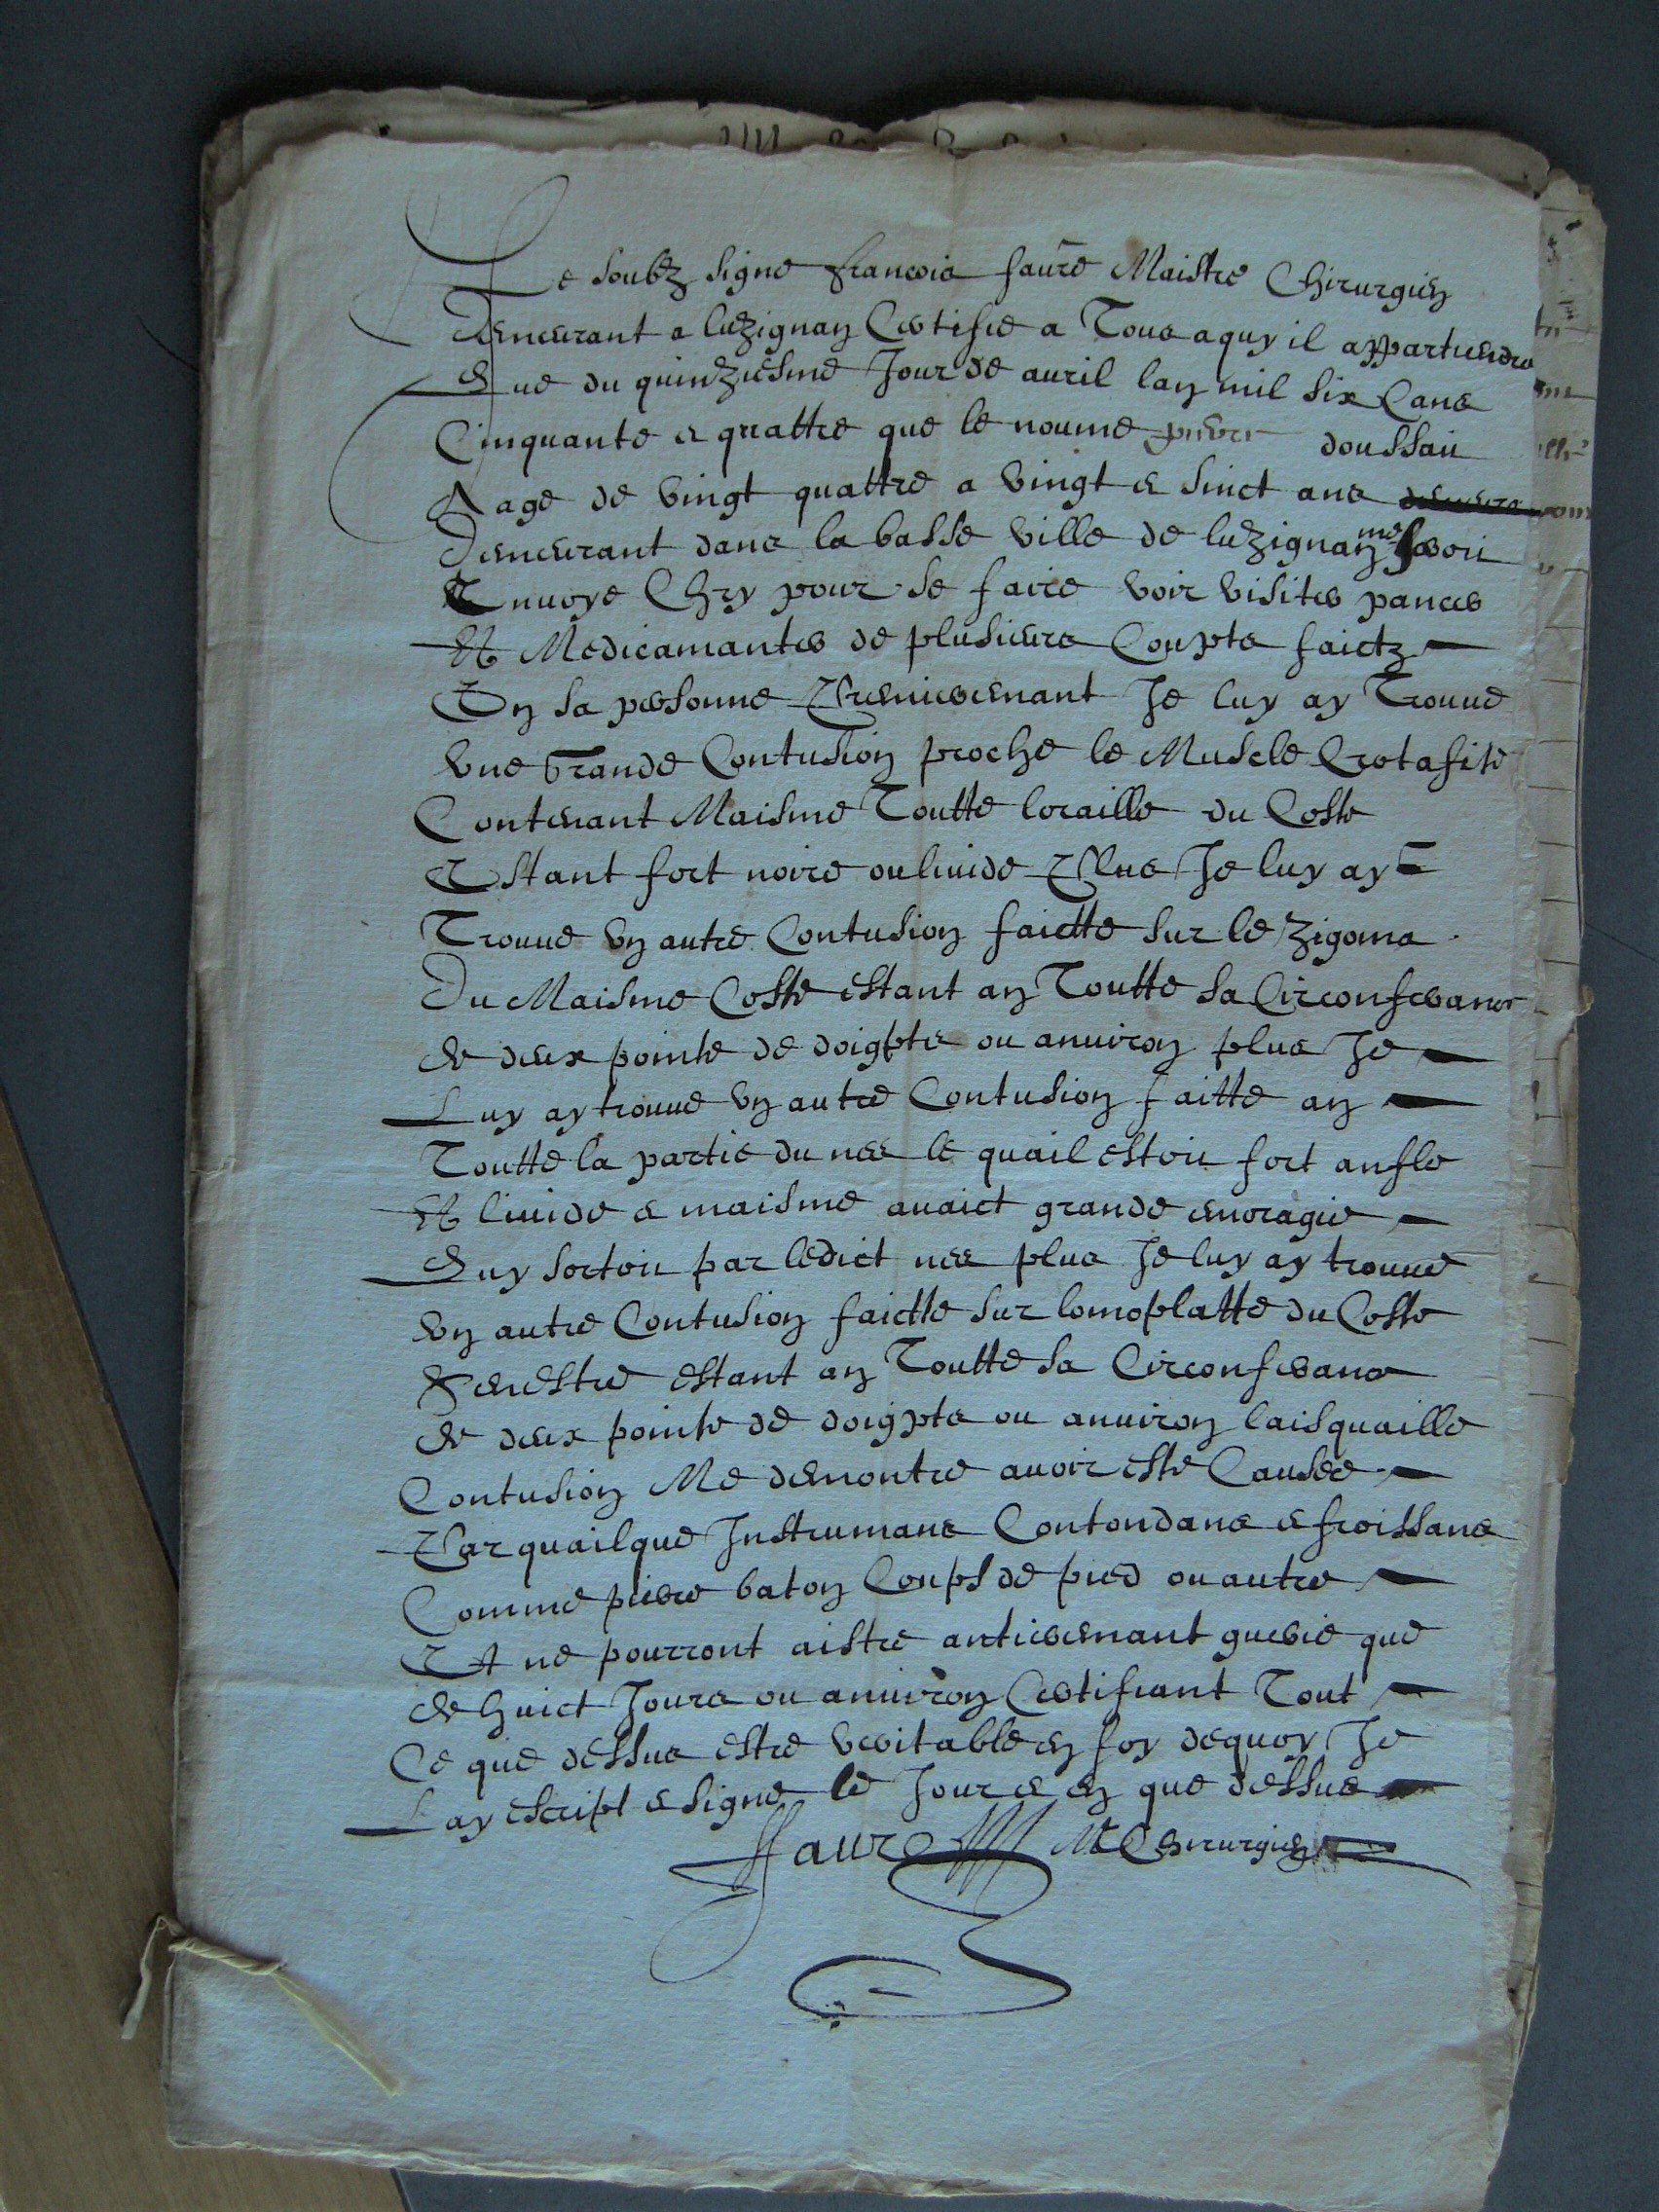 Je soubz signe francois faure Maistre Chirurgien
Demeurant a luzignan Certifie a Tous a quy il appartiendra
Que du quinziesme Jour de auril lan mil six Cans
Cinquante e quattre que le noume pierre doussait
Aage de vingt quattre a vingt e sinct ans
Demeurant dans la basse ville de luzignan me seroit
Enuoye Chez pour se faire voir visiter pancer
Et Medicamanter de plusieurs Coupts faictz
En sa personne Premieremant Je luy ay Trouue
vne Grande Contusion proche le Muscle Crotafite
Contenant Maisme Toutte loraille du Coste
Estant fort noire ou liuide Plus Je luy ay
Trouue vn autre Contusion faictte sur le zigoma
Du Maisme Coste estant an Toutte sa Circonferance
de deux pointe de doigpts ou anuiron plus Je
Luy ay trouue vn autre Contusion faitte an
Toutte la partie du nes le quail estoit fort anfle
Et liuide e maisme auaict grande emoragie
Quy sortoit par ledict nes plus Je luy ay trouue
vn autre Contusion faictte sur lomoplatte du Coste
Senestre estant an Toutte sa Circonferance
de deux pointe de doigpts ou anuiron laisquaille
Contusion Me demontre auoir este Causee
Par quailque Instrumans Contondans e froissans
Comme pierre baton Coups de pied ou autre
Et ne pourront aistre antieremant guerie que
de huict Jours ou anuiron Certifiant Tout
Ce que dessus estre veritable en foy dequoy Je
Lay escript e signe le Jour e en que dessus
Faure Mc Chirurgien